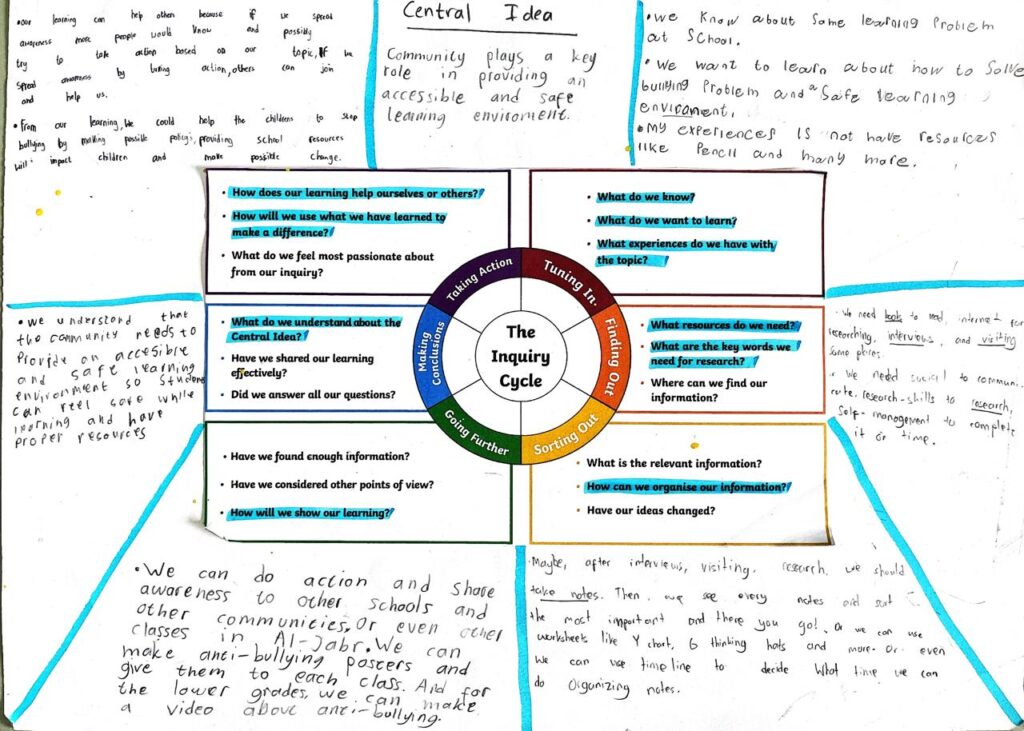 • our learning can help others because if we spread
awareness more people would know and possibly
try to take action based on our topic, If we
spread awareness by taking action, others can join
and help us.
• From our learning, We could help the childrens to stop
bullying by making possible policy, providing school resources
will impact children and make possible change.
Central Idea
Community plays a key
role in providing an
accessible and safe
learning enviroment.
• we know about some learning Problem
at School.
• We want to learn about how to Solve
bullying Problem and a Safe learning
enviroment.
• My experiences is not have resources
like Pencil and many more.
• How does our learning help ourselves or others?
• How will we use what we have learned to
make a difference?
• What do we feel most passionate about
from our inquiry?
• What do we know?
• What do we want to learn?
• What experiences do we have with
the topic?
Taking Action
Tuning In
Finding Out
Sorting Out
Going Further
Making
Conclusions
The
Inquiry
Cycle
• We understand that
the community needs to
Provide an accesible
and safe learning
environment so Students
can feel safe while
learning and have
proper resources
• What do we understand about the
Central Idea?
• Have we shared our learning
effectively?
• Did we answer all our questions?
• What resources do we need?
• What are the key words we
need for research?
• Where can we find our
information?
• We need books to read, internet for
researching, interviews, and visiting
some places.
• We need social to communi-
cate, research-skills to research,
Self-management to complete
it on time.
• Have we found enough information?
• Have we considered other points of view?
• How will we show our learning?
• What is the relevant information?
• How can we organise our information?
• Have our ideas changed?
• We can do action and share
awareness to other schools and
other communities, Or even other
classes in Al-Jabr. We can
make anti-bullying posters and
give them to each class. And for
the lower grades, we can make
a video about anti-bullying.
• Maybe, after interviews, visiting, research, we should
take notes. Then, we see every notes and sort
the most important and there you go!, Or we can use
worksheets like Y chart, 6 thinking hats and more. Or even
We can use timeline to decide What time we can
do Organizing notes.